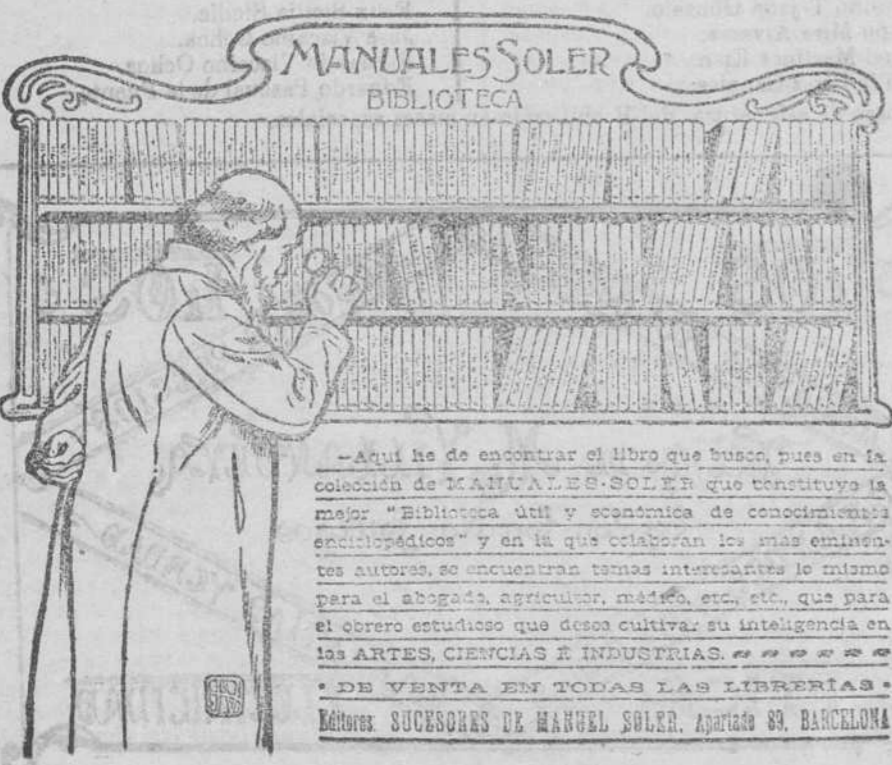 MANUALES SOLER
BIBLIOTECA
—Aquí he de encontrar el libro que busco, pues en la
colección de MANUALES-SOLER que constituye la
mejor "Biblioteca útil y económica de conocimientos
enciclopédicos" y en la que colaboran los más eminen-
tes autores, se encuentran temas interesantes lo mismo
para el abogado, agricultor, médico, etc., etc., que para
el obrero estudioso que desea cultivar su inteligencia en
las ARTES, CIENCIAS É INDUSTRIAS.
• DE VENTA EN TODAS LAS LIBRERÍAS •
Editores: SUCESORES DE MANUEL SOLER, Apartado 89, BARCELONA